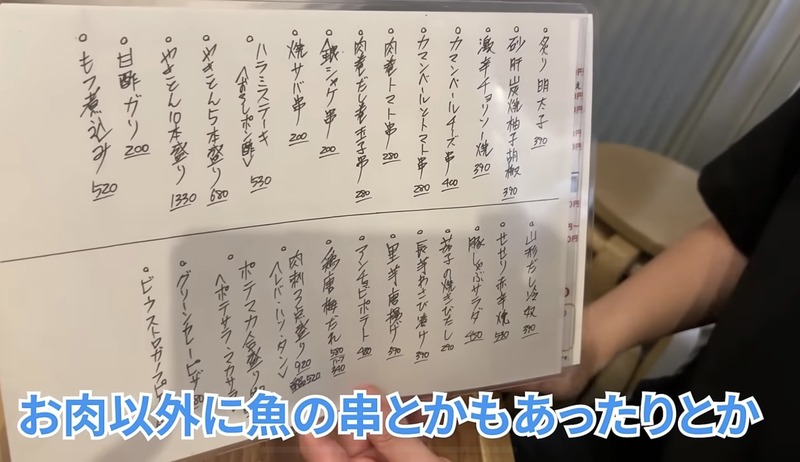 炙り明太子 390
砂肝炭焼柚子胡椒 390
激辛チョリソー焼 390
カマンベールチーズ串 400
カマンベールとトマト串 280
肉巻トマト串 280
肉巻だし巻玉子串 280
銀シャケ串 200
焼サバ串 200
ハラミステーキ
〈おろしポン酢〉 530
やきとん5本盛り 680
やきとん10本盛り 1330
甘酢ガリ 200
もつ煮込み 520
山形だし冷奴 390
せせり赤辛焼 580
豚しゃぶサラダ 450
茄子の焼きびたし 290
長芋わさび漬け 390
里芋唐揚げ 390
アンチョビポテート 480
鶏唐梅だれ 580
ハーフ 340
肉刺3点盛り 920
〈レバ・ハツ・タン〉 520
ポテマカ合盛り
〈ポテサラ・マカサラ
グリーンカレーピザ
ビフストロガノフピ
お肉以外に魚の串とかもあったりとか